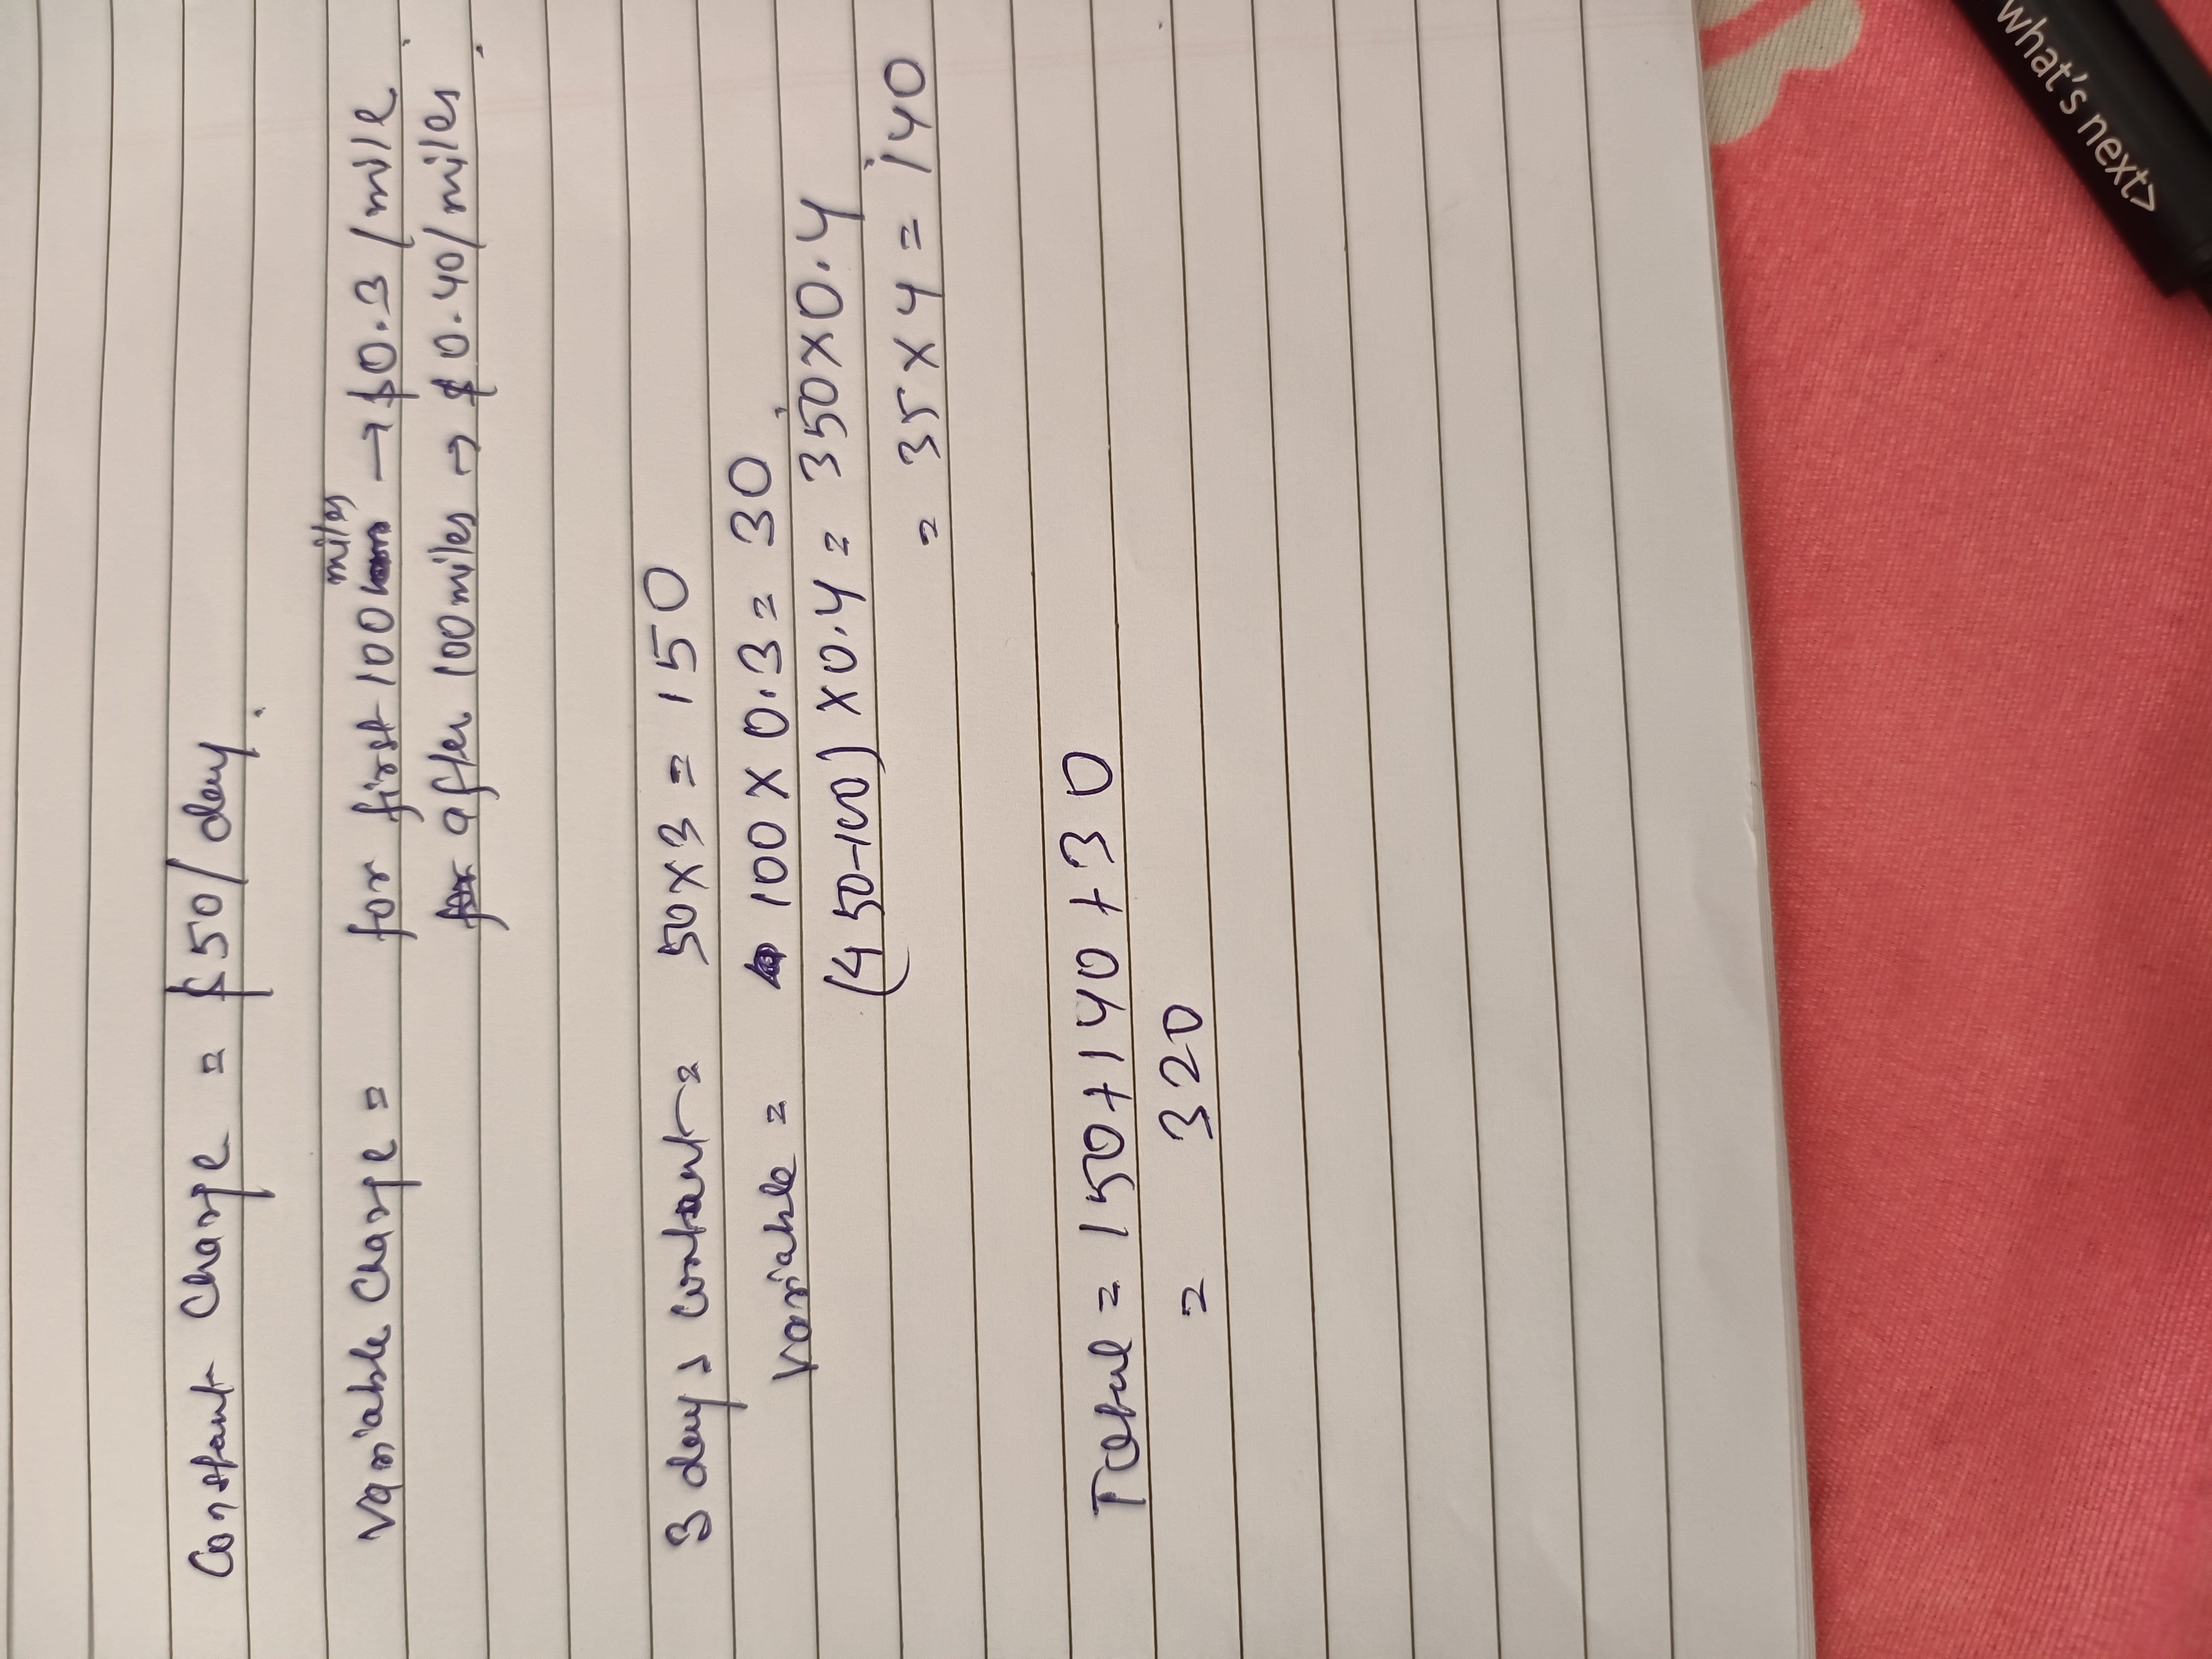 Constant Charge = $50/day.
Variable Charge = for first 100 miles → $0.3/mile.
after 100 miles → $0.40/miles.
3 days constant = 50 x 3 = 150
Variable = 100 x 0.3 = 30
(450-100) x 0.4 = 350 x 0.4
= 35 x 4 = 140
Total = 150 + 140 + 30
= 320
what's next>